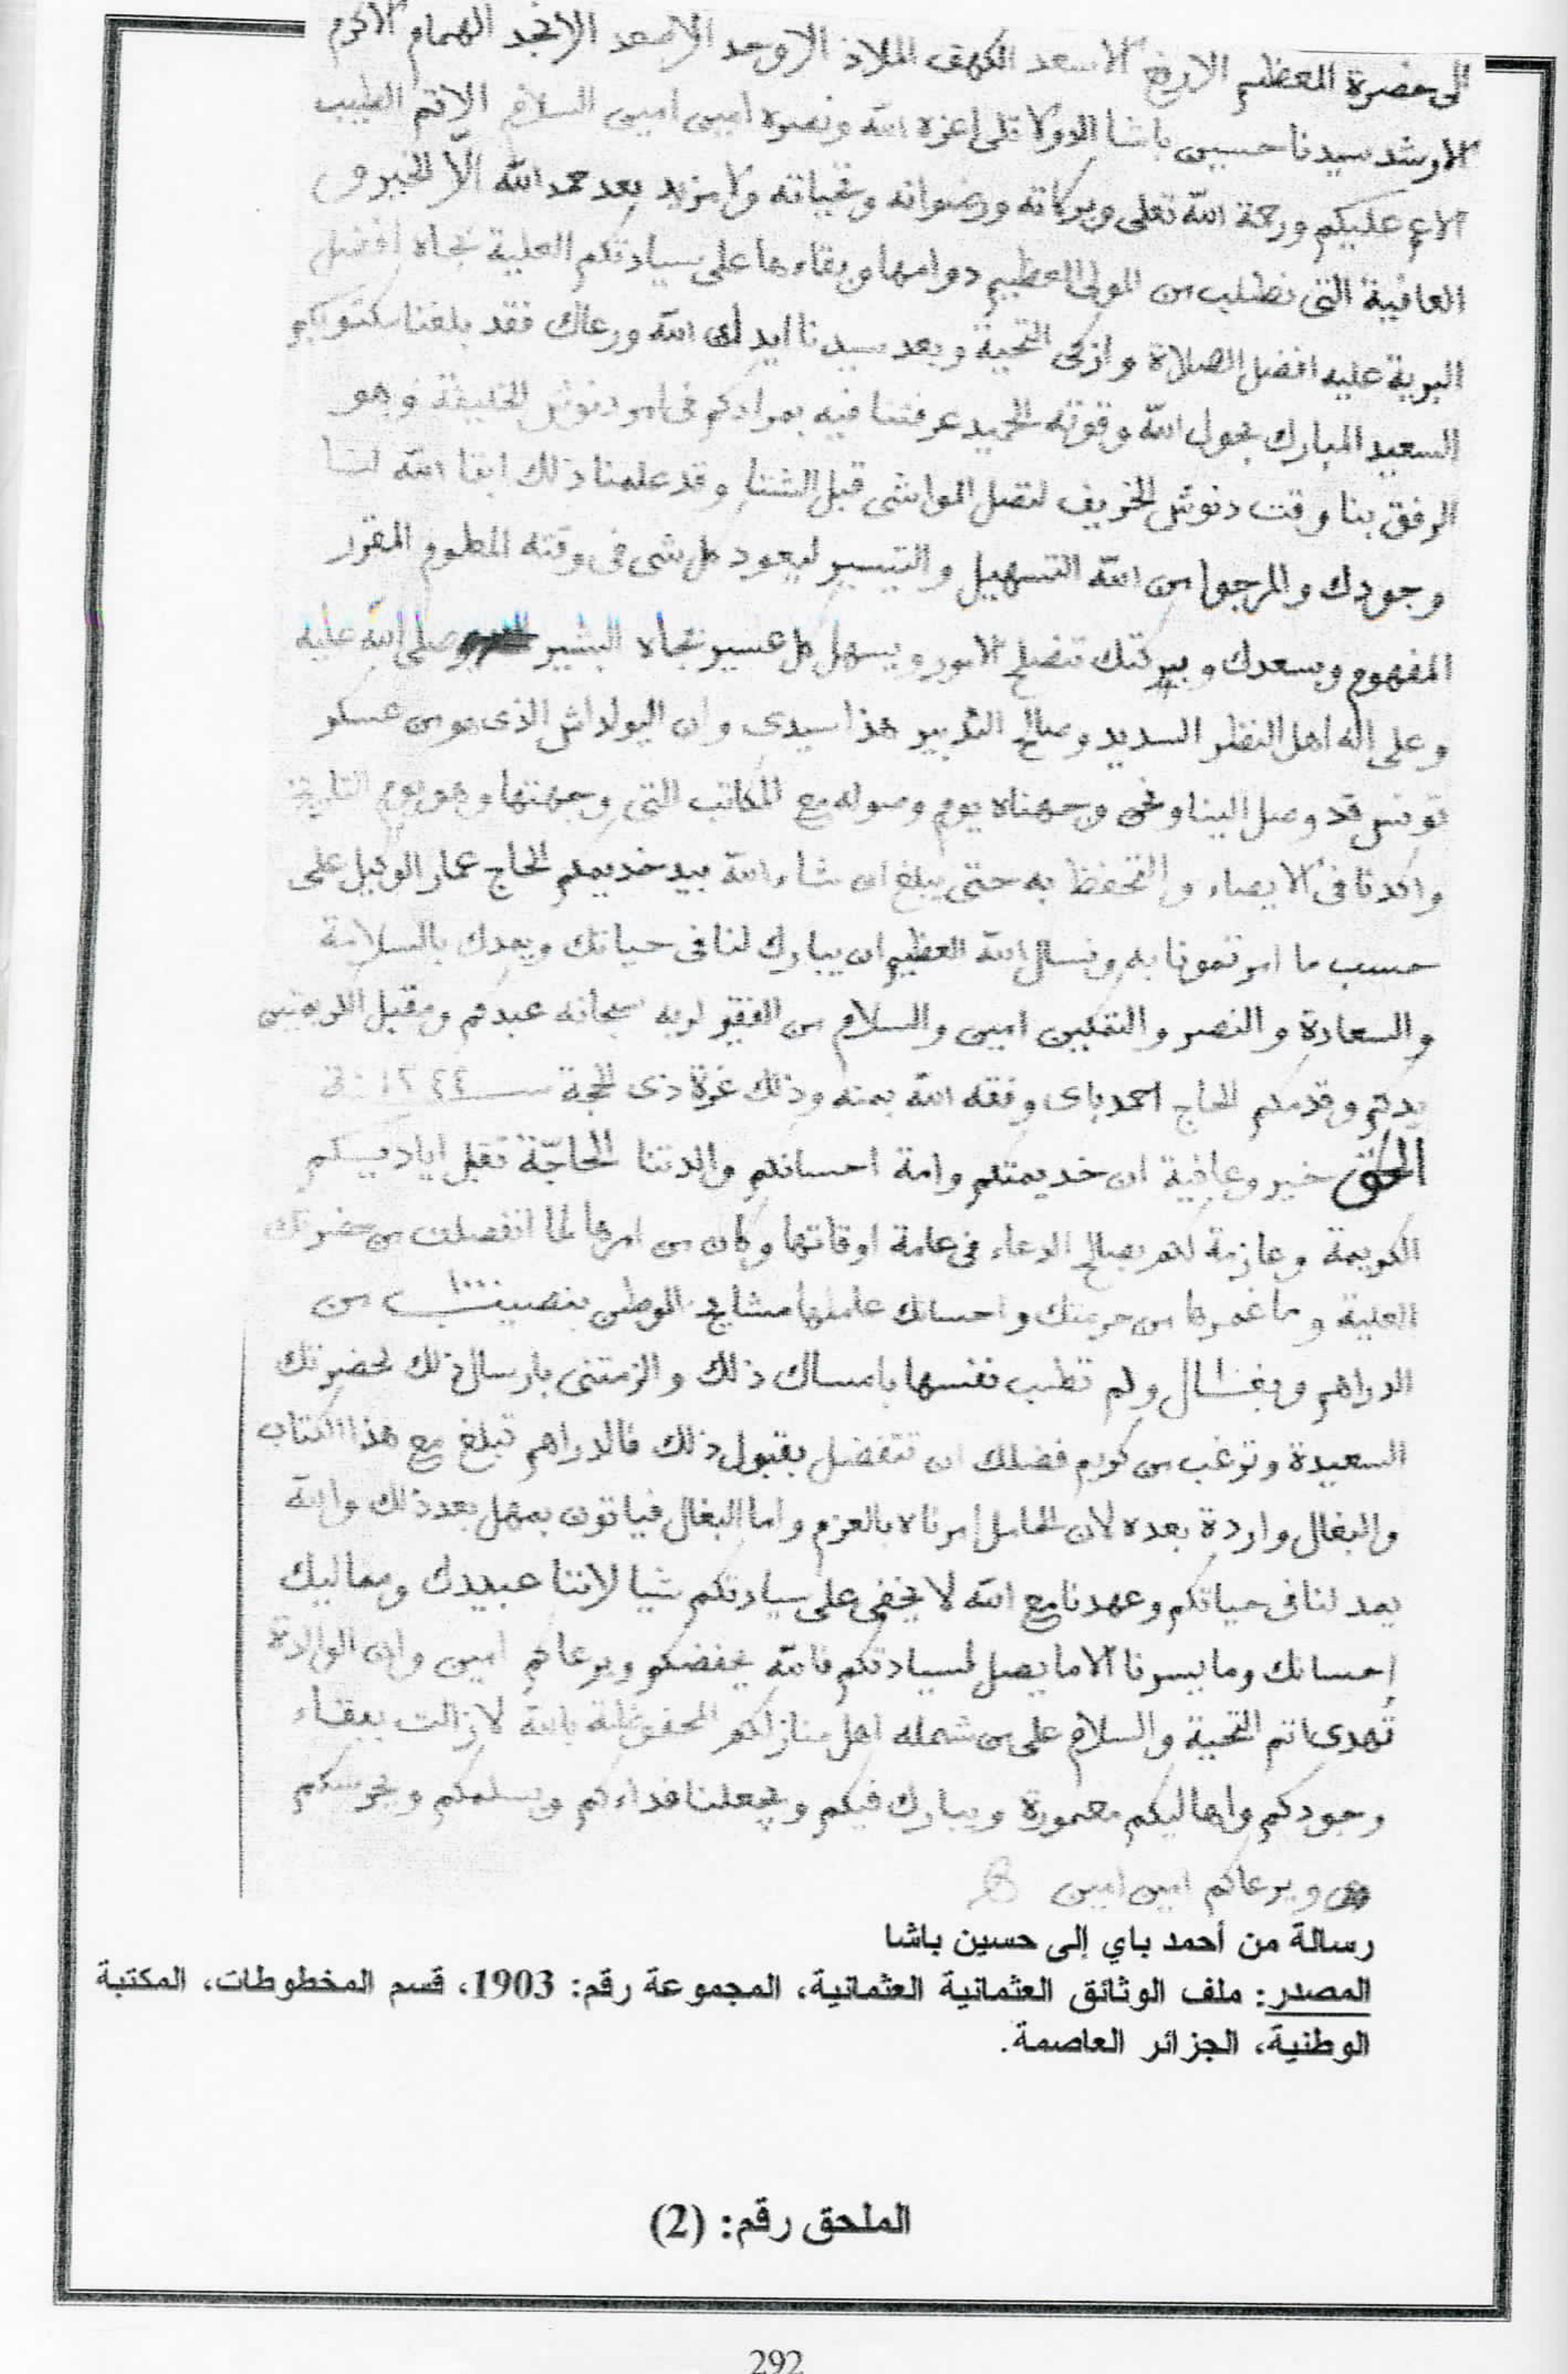 الى حضرة المعظم الارفع الاسعد الكهف الملاذ الاوحد الامجد الانجد الهمام الاكرم
الارشد سيدنا حسين باشا الدولاتلى اعزه الله ونصره امين امين السلام الاتم الطيب
الاعم عليكم ورحمة الله تعلى وبركاته ورضوانه وتحياته ولا مزيد بعد حمد الله الّا الخير و
العافية التى نطلب من المولى العظيم دوامها وبقاءها على سيادتكم العلية بجاه افضل
البرية عليه افضل الصلاة وازكى التحية وبعد سيدنا ايدك الله ورعاك فقد بلغنا مكتوبكم
السعيد المبارك بحول الله وقوته الحميد عرفتنا فيه بمرادكم فى امر دنوش الخليفة وهو
الرفق بنا وقت دنوش الخريف لتصل المواشى قبل الشتاء وقد علمنا ذلك ابقا الله لنا
وجودك والمرجوا من الله التسهيل والتيسير ليعود كل شى فى وقته المعلوم المقرر
المفهوم وبسعدك وببركتك تنصلح الامور ويسهل كل عسير بجاه البشير صلى الله عليه
وعلى اله اهل النظر السديد وصالح التدبير هذا سيدى وان اليولداش الذى هو من عسكر
تونس قد وصل الينا ونحن وجهناه يوم وصوله مع المكاتب التى وجهتها وهو يوم التاريخ
واكدنا فى الايصاء والتحفظ به حتى يبلغ ان شاء الله بيد خديمكم الحاج عمار الوكيل على
حسب ما امرتمونا به ونسال الله العظيم ان يبارك لنا فى حياتك ويمدك بالسلامة
والسعادة والنصر والتمكين امين والسلام من الفقير لربه سبحانه عبدكم ومقبل الكريمتين
يدكم وقدمكم الحاج احمد باى وفقه الله بمنه وذلك غرة ذى الحجة سنة ١٢٤٤
الحق خير وعافية ان خديمتكم وامة احسانكم والدتنا الحاجّة تقبل اياديكم
الكريمة وعازمة لكم بصالح الدعاء فى عامة اوقاتها وكان من امرها لما انفصلت من حضرتك
العلية وما غمرها من حرمتك واحسانك عاملها مشايخ الوطن من
الدراهم وبغال ولم تطب نفسها بامساك ذلك والزمتنى بارسال ذلك لحضرتك
السعيدة وترغب من كريم فضلك ان تتفضل بقبول ذلك فالدراهم تبلغ مع هذا الكتاب
والبغال واردة بعده لان الحامل امرناه بالعزم واما البغال فياتون بمهل بعد ذلك والله
يمد لنا فى حياتكم وعهدنا مع الله لا يخفى على سيادتكم شيا لاننا عبيدك ومماليك
احسانك وما يسرنا الا ما يصل لسيادتكم فالله يحفضكم ويرعاكم امين وان الوالدة
تُهدى اتم التحية والسلام على من شمله اهل منازلكم المحفوظة بالله لا زالت ببقاء
وجودكم واهاليكم معمورة ويبارك فيكم ويجعلنا فداءكم ويسلمكم ويحرسكم
ويرعاكم امين امين
رسالة من أحمد باي إلى حسين باشا
المصدر: ملف الوثائق العثمانية العثمانية، المجموعة رقم: 1903، قسم المخطوطات، المكتبة
الوطنية، الجزائر العاصمة.
الملحق رقم: (2)
292